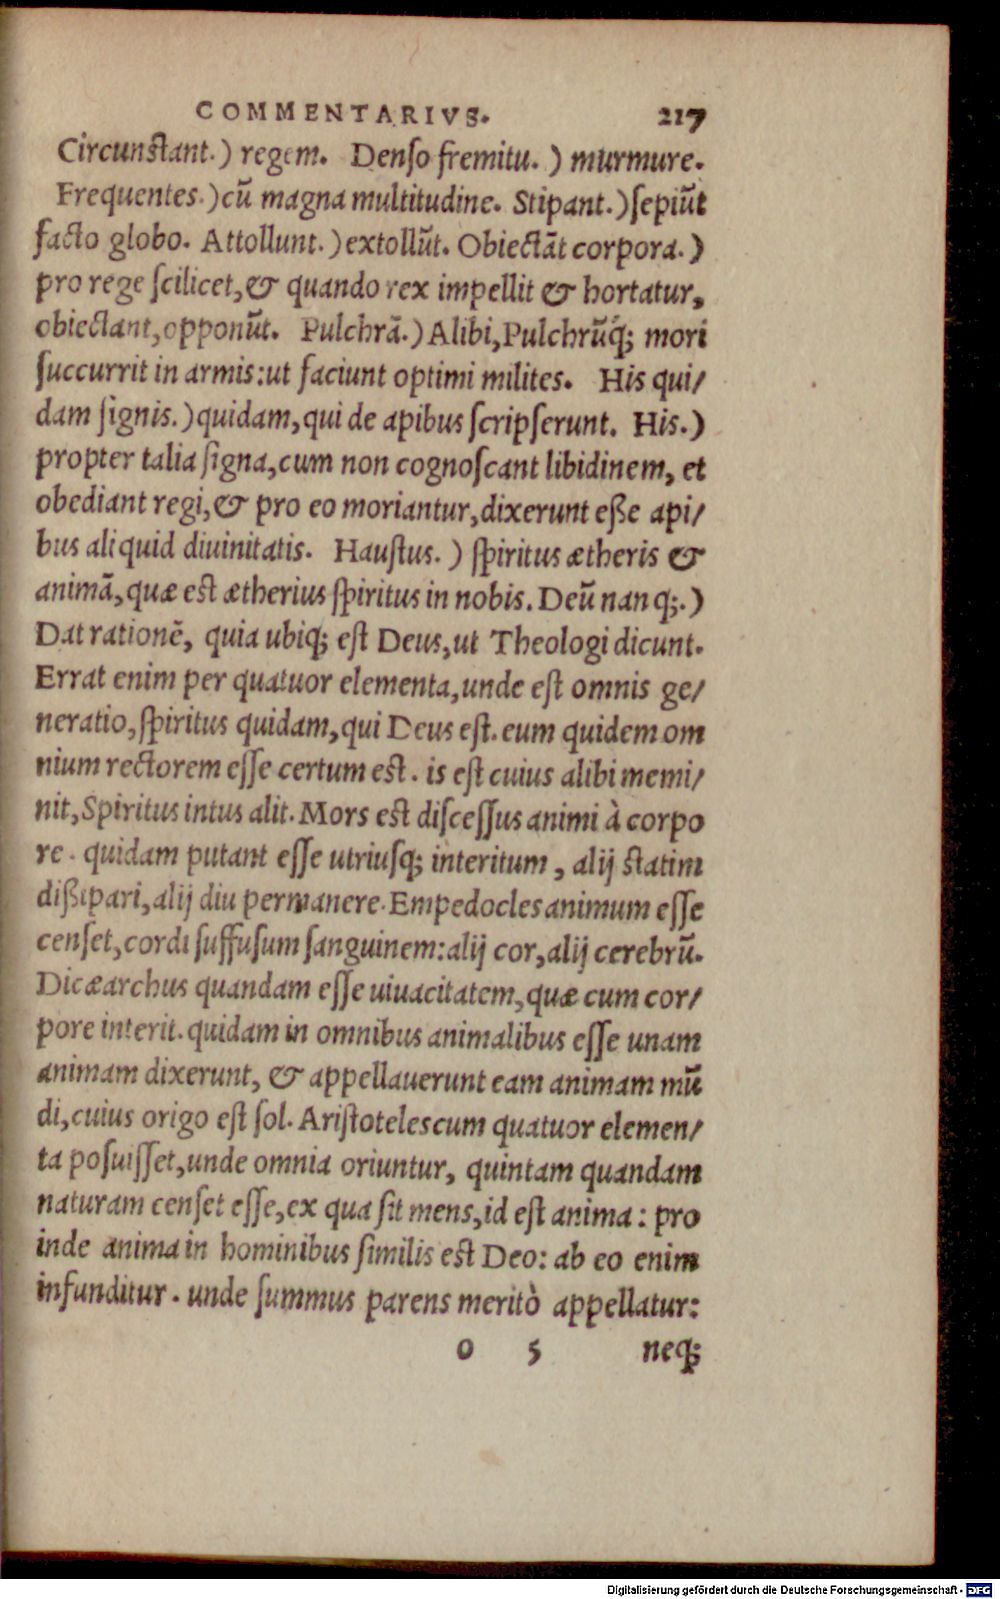 COMMENTARIVS. 217
Circunſtant.) regem. Denſo fremitu.) murmure.
Frequentes.) cū magna multitudine. Stipant.) ſepiūt
facto globo. Attollunt.) extollūt. Obiectāt corpora.)
pro rege ſcilicet, & quando rex impellit & hortatur,
obiectant, opponūt. Pulchrā.) Alibi, Pulchrūq́; mori
ſuccurrit in armis: ut faciunt optimi milites. His qui/
dam ſignis.) quidam, qui de apibus ſcripſerunt. His.)
propter talia ſigna, cum non cognoſcant libidinem, et
obediant regi, & pro eo moriantur, dixerunt eße api/
bus aliquid diuinitatis. Hauſtus.) ſpiritus ætheris &
animā, quæ est ætherius ſpiritus in nobis. Deū nanq;.)
Dat rationē, quia ubiq; eſt Deus, ut Theologi dicunt.
Errat enim per quatuor elementa, unde eſt omnis ge/
neratio, ſpiritus quidam, qui Deus eſt. eum quidem om
nium rectorem eſſe certum est. is eſt cuius alibi memi/
nit, Spiritus intus alit. Mors est diſceſſus animi à corpo
re. quidam putant eſſe utriuſq; interitum, alij statim
dißipari, alij diu permanere. Empedocles animum eſſe
cenſet, cordi ſuffuſum ſanguinem: alij cor, alij cerebrū.
Dicæarchus quandam eſſe uiuacitatem, quæ cum cor/
pore interit. quidam in omnibus animalibus eſſe unam
animam dixerunt, & appellauerunt eam animam mū
di, cuius origo eſt ſol. Ariſtoteles cum quatuor elemen/
ta poſuiſſet, unde omnia oriuntur, quintam quandam
naturam cenſet eſſe, ex qua ſit mens, id eſt anima: pro
inde anima in hominibus ſimilis est Deo: ab eo enim
infunditur. unde ſummus parens meritò appellatur:
o 5 neq;
Digitalisierung gefördert durch die Deutsche Forschungsgemeinschaft - DFG